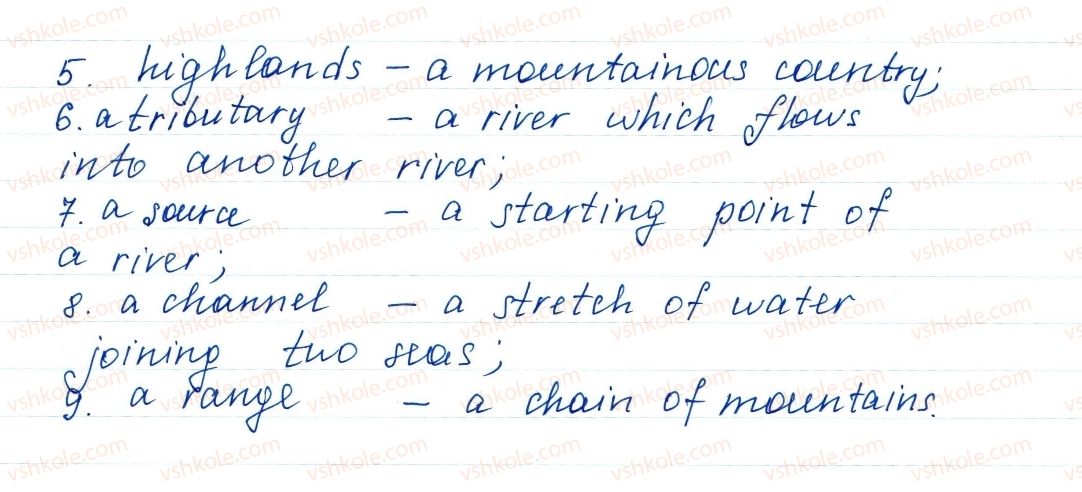 5. highlands – a mountainous country;
6. a tributary – a river which flows
into another river;
7. a source – a starting point of
a river;
8. a channel – a stretch of water
joining two seas;
9. a range – a chain of mountains.